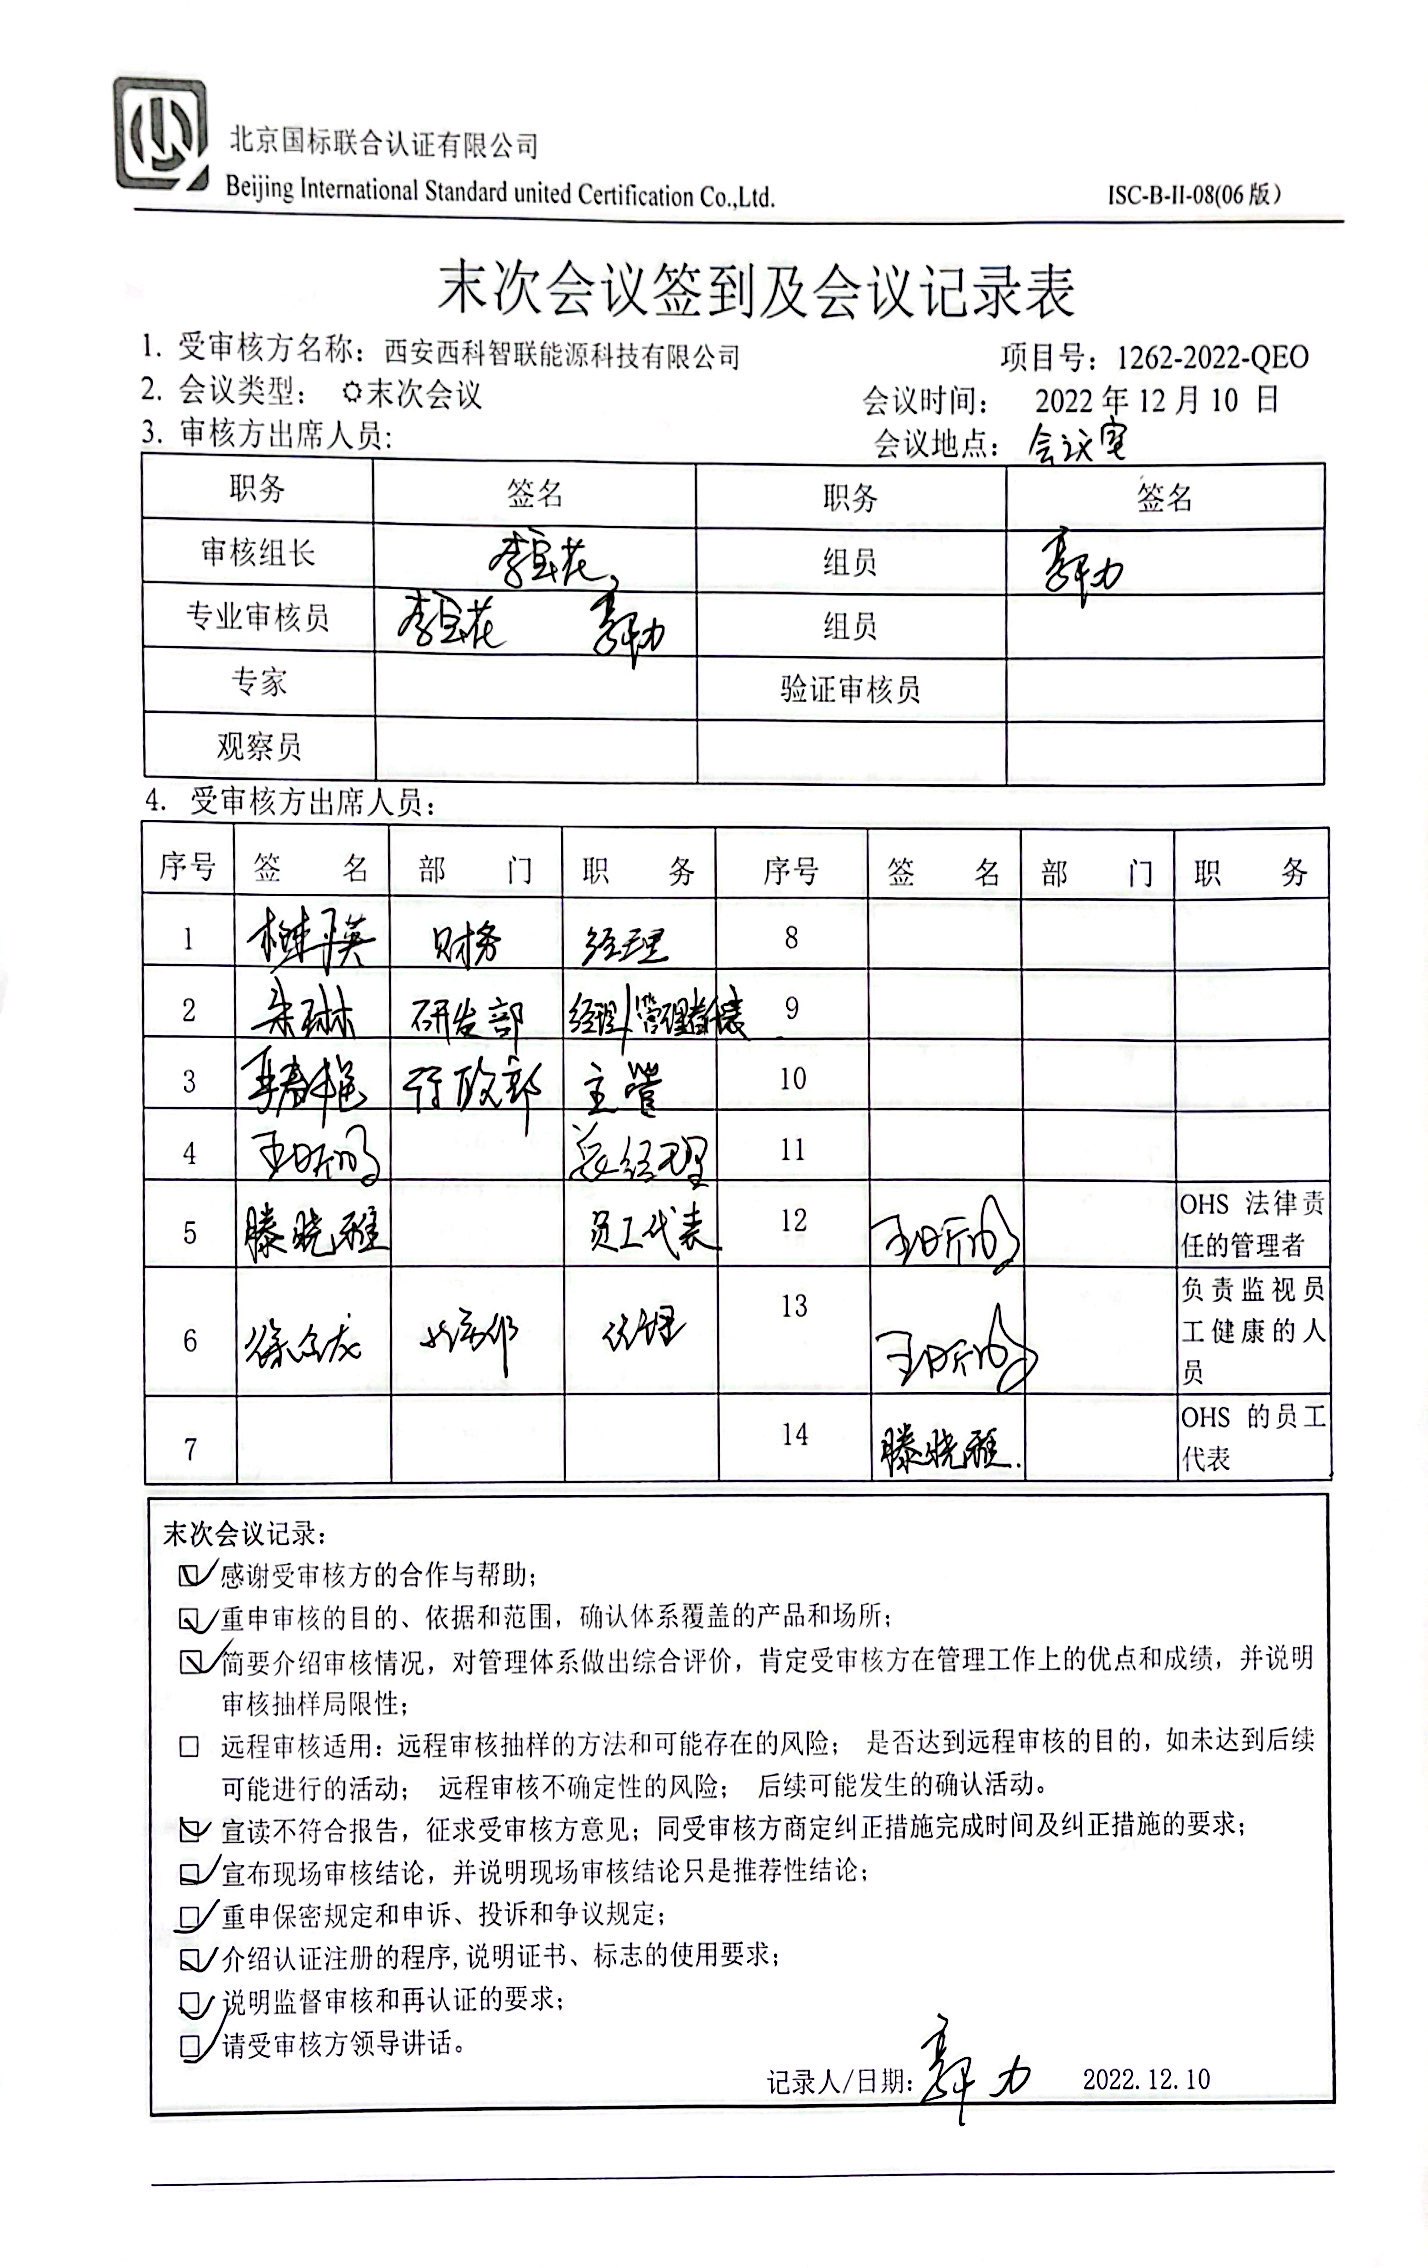 北京国标联合认证有限公司
Beijing International Standard united Certification Co.,Ltd.
ISC-B-II-08(06版)
末次会议签到及会议记录表
1. 受审核方名称：西安西科智联能源科技有限公司 项目号：1262-2022-QEO
2. 会议类型： 末次会议 会议时间： 2022年12月10日
3. 审核方出席人员： 会议地点：会议室
职务 签名 职务 签名
审核组长 李宝花 组员 郭力
专业审核员 李宝花 郭力 组员
专家 验证审核员
观察员
4. 受审核方出席人员：
序号 签名 部门 职务 序号 签名 部门 职务
1 财务 经理 8
2 朱琳 研发部 经理/管理者代表 9
3 行政部 主管 10
4 总经理 11
5 滕晓雅 员工代表 12 OHS 法律责
任的管理者
6 经理 13 负责监视员
工健康的人
员
7 14 滕晓雅 OHS 的员工
代表
末次会议记录：
感谢受审核方的合作与帮助；
重申审核的目的、依据和范围，确认体系覆盖的产品和场所；
简要介绍审核情况，对管理体系做出综合评价，肯定受审核方在管理工作上的优点和成绩，并说明
审核抽样局限性；
□ 远程审核适用：远程审核抽样的方法和可能存在的风险； 是否达到远程审核的目的，如未达到后续
可能进行的活动； 远程审核不确定性的风险； 后续可能发生的确认活动。
宣读不符合报告，征求受审核方意见；同受审核方商定纠正措施完成时间及纠正措施的要求；
宣布现场审核结论，并说明现场审核结论只是推荐性结论；
重申保密规定和申诉、投诉和争议规定；
介绍认证注册的程序,说明证书、标志的使用要求；
说明监督审核和再认证的要求；
请受审核方领导讲话。
记录人/日期：郭力 2022.12.10